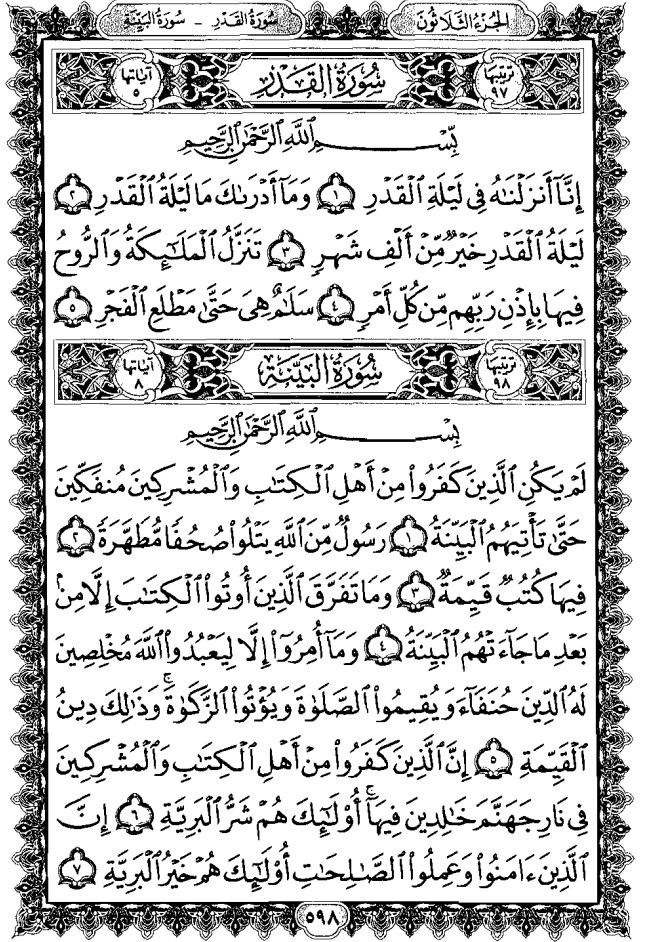 الجزء الثلاثون سورة القدر - سورة البينة
ترتيبها ٩٧ سُورَةُ القَدْرِ آياتها ٥
بِسْمِ ٱللَّهِ ٱلرَّحْمَٰنِ ٱلرَّحِيمِ
إِنَّآ أَنزَلْنَٰهُ فِى لَيْلَةِ ٱلْقَدْرِ ١ وَمَآ أَدْرَىٰكَ مَا لَيْلَةُ ٱلْقَدْرِ ٢
لَيْلَةُ ٱلْقَدْرِ خَيْرٌ مِّنْ أَلْفِ شَهْرٍ ٣ تَنَزَّلُ ٱلْمَلَٰٓئِكَةُ وَٱلرُّوحُ
فِيهَا بِإِذْنِ رَبِّهِم مِّن كُلِّ أَمْرٍ ٤ سَلَٰمٌ هِىَ حَتَّىٰ مَطْلَعِ ٱلْفَجْرِ ٥
ترتيبها ٩٨ سُورَةُ البَيِّنَةِ آياتها ٨
بِسْمِ ٱللَّهِ ٱلرَّحْمَٰنِ ٱلرَّحِيمِ
لَمْ يَكُنِ ٱلَّذِينَ كَفَرُوا۟ مِنْ أَهْلِ ٱلْكِتَٰبِ وَٱلْمُشْرِكِينَ مُنفَكِّينَ
حَتَّىٰ تَأْتِيَهُمُ ٱلْبَيِّنَةُ ١ رَسُولٌ مِّنَ ٱللَّهِ يَتْلُوا۟ صُحُفًا مُّطَهَّرَةً ٢
فِيهَا كُتُبٌ قَيِّمَةٌ ٣ وَمَا تَفَرَّقَ ٱلَّذِينَ أُوتُوا۟ ٱلْكِتَٰبَ إِلَّا مِنۢ
بَعْدِ مَا جَآءَتْهُمُ ٱلْبَيِّنَةُ ٤ وَمَآ أُمِرُوٓا۟ إِلَّا لِيَعْبُدُوا۟ ٱللَّهَ مُخْلِصِينَ
لَهُ ٱلدِّينَ حُنَفَآءَ وَيُقِيمُوا۟ ٱلصَّلَوٰةَ وَيُؤْتُوا۟ ٱلزَّكَوٰةَ ۚ وَذَٰلِكَ دِينُ
ٱلْقَيِّمَةِ ٥ إِنَّ ٱلَّذِينَ كَفَرُوا۟ مِنْ أَهْلِ ٱلْكِتَٰبِ وَٱلْمُشْرِكِينَ
فِى نَارِ جَهَنَّمَ خَٰلِدِينَ فِيهَآ ۚ أُو۟لَٰٓئِكَ هُمْ شَرُّ ٱلْبَرِيَّةِ ٦ إِنَّ
ٱلَّذِينَ ءَامَنُوا۟ وَعَمِلُوا۟ ٱلصَّٰلِحَٰتِ أُو۟لَٰٓئِكَ هُمْ خَيْرُ ٱلْبَرِيَّةِ ٧
٥٩٨